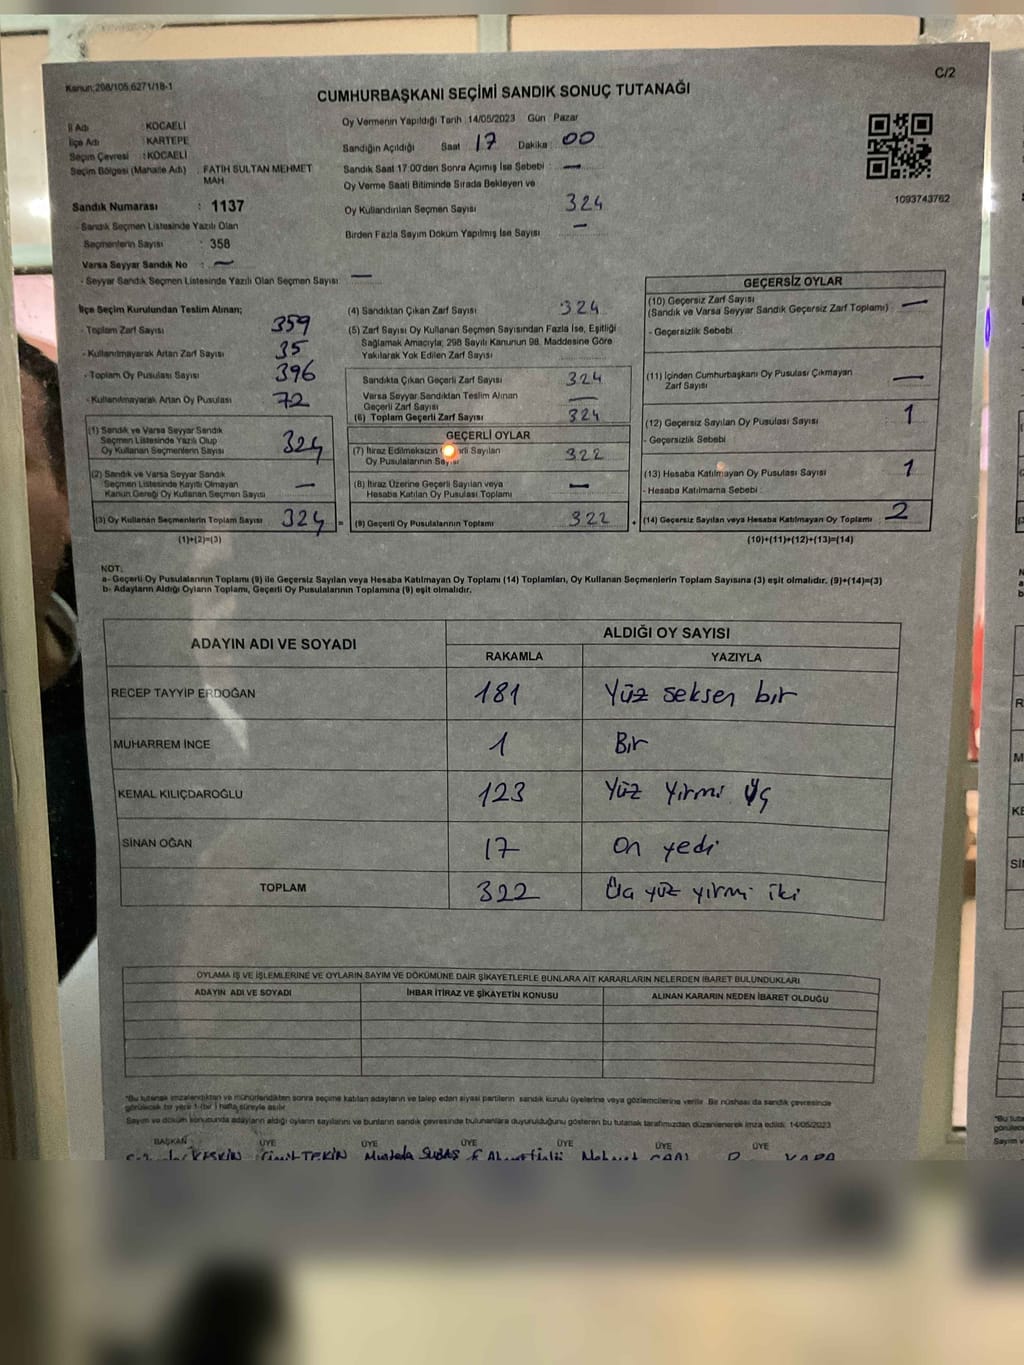 Kanun:298/105,6271/18-1
C/2
CUMHURBAŞKANI SEÇİMİ SANDIK SONUÇ TUTANAĞI
İl Adı : KOCAELİ
İlçe Adı : KARTEPE
Seçim Çevresi : KOCAELİ
Seçim Bölgesi (Mahalle Adı) : FATİH SULTAN MEHMET MAH
Sandık Numarası : 1137
- Sandık Seçmen Listesinde Yazılı Olan
Seçmenlerin Sayısı : 358
Varsa Seyyar Sandık No : —
- Seyyar Sandık Seçmen Listesinde Yazılı Olan Seçmen Sayısı —
Oy Vermenin Yapıldığı Tarih :14/05/2023 Gün : Pazar
Sandığın Açıldığı Saat 17 Dakika : 00
Sandık Saat 17.00'den Sonra Açımış İse Sebebi : —
Oy Verme Saati Bitiminde Sırada Bekleyen ve
Oy Kullandırılan Seçmen Sayısı 324
Birden Fazla Sayım Döküm Yapılmış İse Sayısı —
1093743762
İlçe Seçim Kurulundan Teslim Alınan;
- Toplam Zarf Sayısı 359
- Kullanılmayarak Artan Zarf Sayısı 35
- Toplam Oy Pusulası Sayısı 396
- Kullanılmayarak Artan Oy Pusulası 72
(1) Sandık ve Varsa Seyyar Sandık
Seçmen Listesinde Yazılı Olup
Oy Kullanan Seçmenlerin Sayısı 324
(2) Sandık ve Varsa Seyyar Sandık
Seçmen Listesinde Kayıtlı Olmayan
Kanun Gereği Oy Kullanan Seçmen Sayısı —
(3) Oy Kullanan Seçmenlerin Toplam Sayısı 324 =
(1)+(2)=(3)
(4) Sandıktan Çıkan Zarf Sayısı 324
(5) Zarf Sayısı Oy Kullanan Seçmen Sayısından Fazla İse, Eşitliği
Sağlamak Amacıyla; 298 Sayılı Kanunun 98. Maddesine Göre
Yakılarak Yok Edilen Zarf Sayısı
Sandıkta Çıkan Geçerli Zarf Sayısı 324
Varsa Seyyar Sandıktan Teslim Alınan
Geçerli Zarf Sayısı —
(6) Toplam Geçerli Zarf Sayısı 324
GEÇERLİ OYLAR
(7) İtiraz Edilmeksizin Sayılan
Oy Pusulalarının 322
(8) İtiraz Üzerine Geçerli Sayılan veya
Hesaba Katılan Oy Pusulası Toplamı —
(9) Geçerli Oy Pusulalarının Toplamı 322 +
GEÇERSİZ OYLAR
(10) Geçersiz Zarf Sayısı
(Sandık ve Varsa Seyyar Sandık Geçersiz Zarf Toplamı) —
- Geçersizlik Sebebi
(11) İçinden Cumhurbaşkanı Oy Pusulası Çıkmayan
Zarf Sayısı —
(12) Geçersiz Sayılan Oy Pusulası Sayısı 1
- Geçersizlik Sebebi
(13) Hesaba Katılmayan Oy Pusulası Sayısı 1
- Hesaba Katılmama Sebebi :
(14) Geçersiz Sayılan veya Hesaba Katılmayan Oy Toplamı : 2
(10)+(11)+(12)+(13)=(14)
NOT:
a- Geçerli Oy Pusulalarının Toplamı (9) ile Geçersiz Sayılan veya Hesaba Katılmayan Oy Toplamı (14) Toplamları, Oy Kullanan Seçmenlerin Toplam Sayısına (3) eşit olmalıdır. (9)+(14)=(3)
b- Adayların Aldığı Oyların Toplamı, Geçerli Oy Pusulalarının Toplamına (9) eşit olmalıdır.
ADAYIN ADI VE SOYADI ALDIĞI OY SAYISI
RAKAMLA YAZIYLA
RECEP TAYYİP ERDOĞAN 181 Yüz seksen bir
MUHARREM İNCE 1 Bir
KEMAL KILIÇDAROĞLU 123 Yüz Yirmi Üç
SİNAN OĞAN 17 On yedi
TOPLAM 322 Üç yüz yirmi iki
OYLAMA İŞ VE İŞLEMLERİNE VE OYLARIN SAYIM VE DÖKÜMÜNE DAİR ŞİKAYETLERLE BUNLARA AİT KARARLARIN NELERDEN İBARET BULUNDUKLARI
ADAYIN ADI VE SOYADI İHBAR İTİRAZ VE ŞİKAYETİN KONUSU ALINAN KARARIN NEDEN İBARET OLDUĞU
"Bu tutanak imzalandıktan ve mühürlendikten sonra seçime katılan adayların ve talep eden siyasi partilerin sandık kurulu üyelerine veya gözlemcilerine verilir. Bir nüshası da sandık çevresinde
görülecek bir yere 1-(bir ) hafta süreyle asılır.
Sayım ve döküm sonucunda adayların aldığı oyların sayılarını ve bunların sandık çevresinde bulunanlara duyurulduğunu gösteren bu tutanak tarafımızdan düzenlenerek imza edildi. 14/05/2023
BAŞKAN ÜYE ÜYE ÜYE ÜYE ÜYE
KESKİN TEKİN Mustafa Mehmet KARA